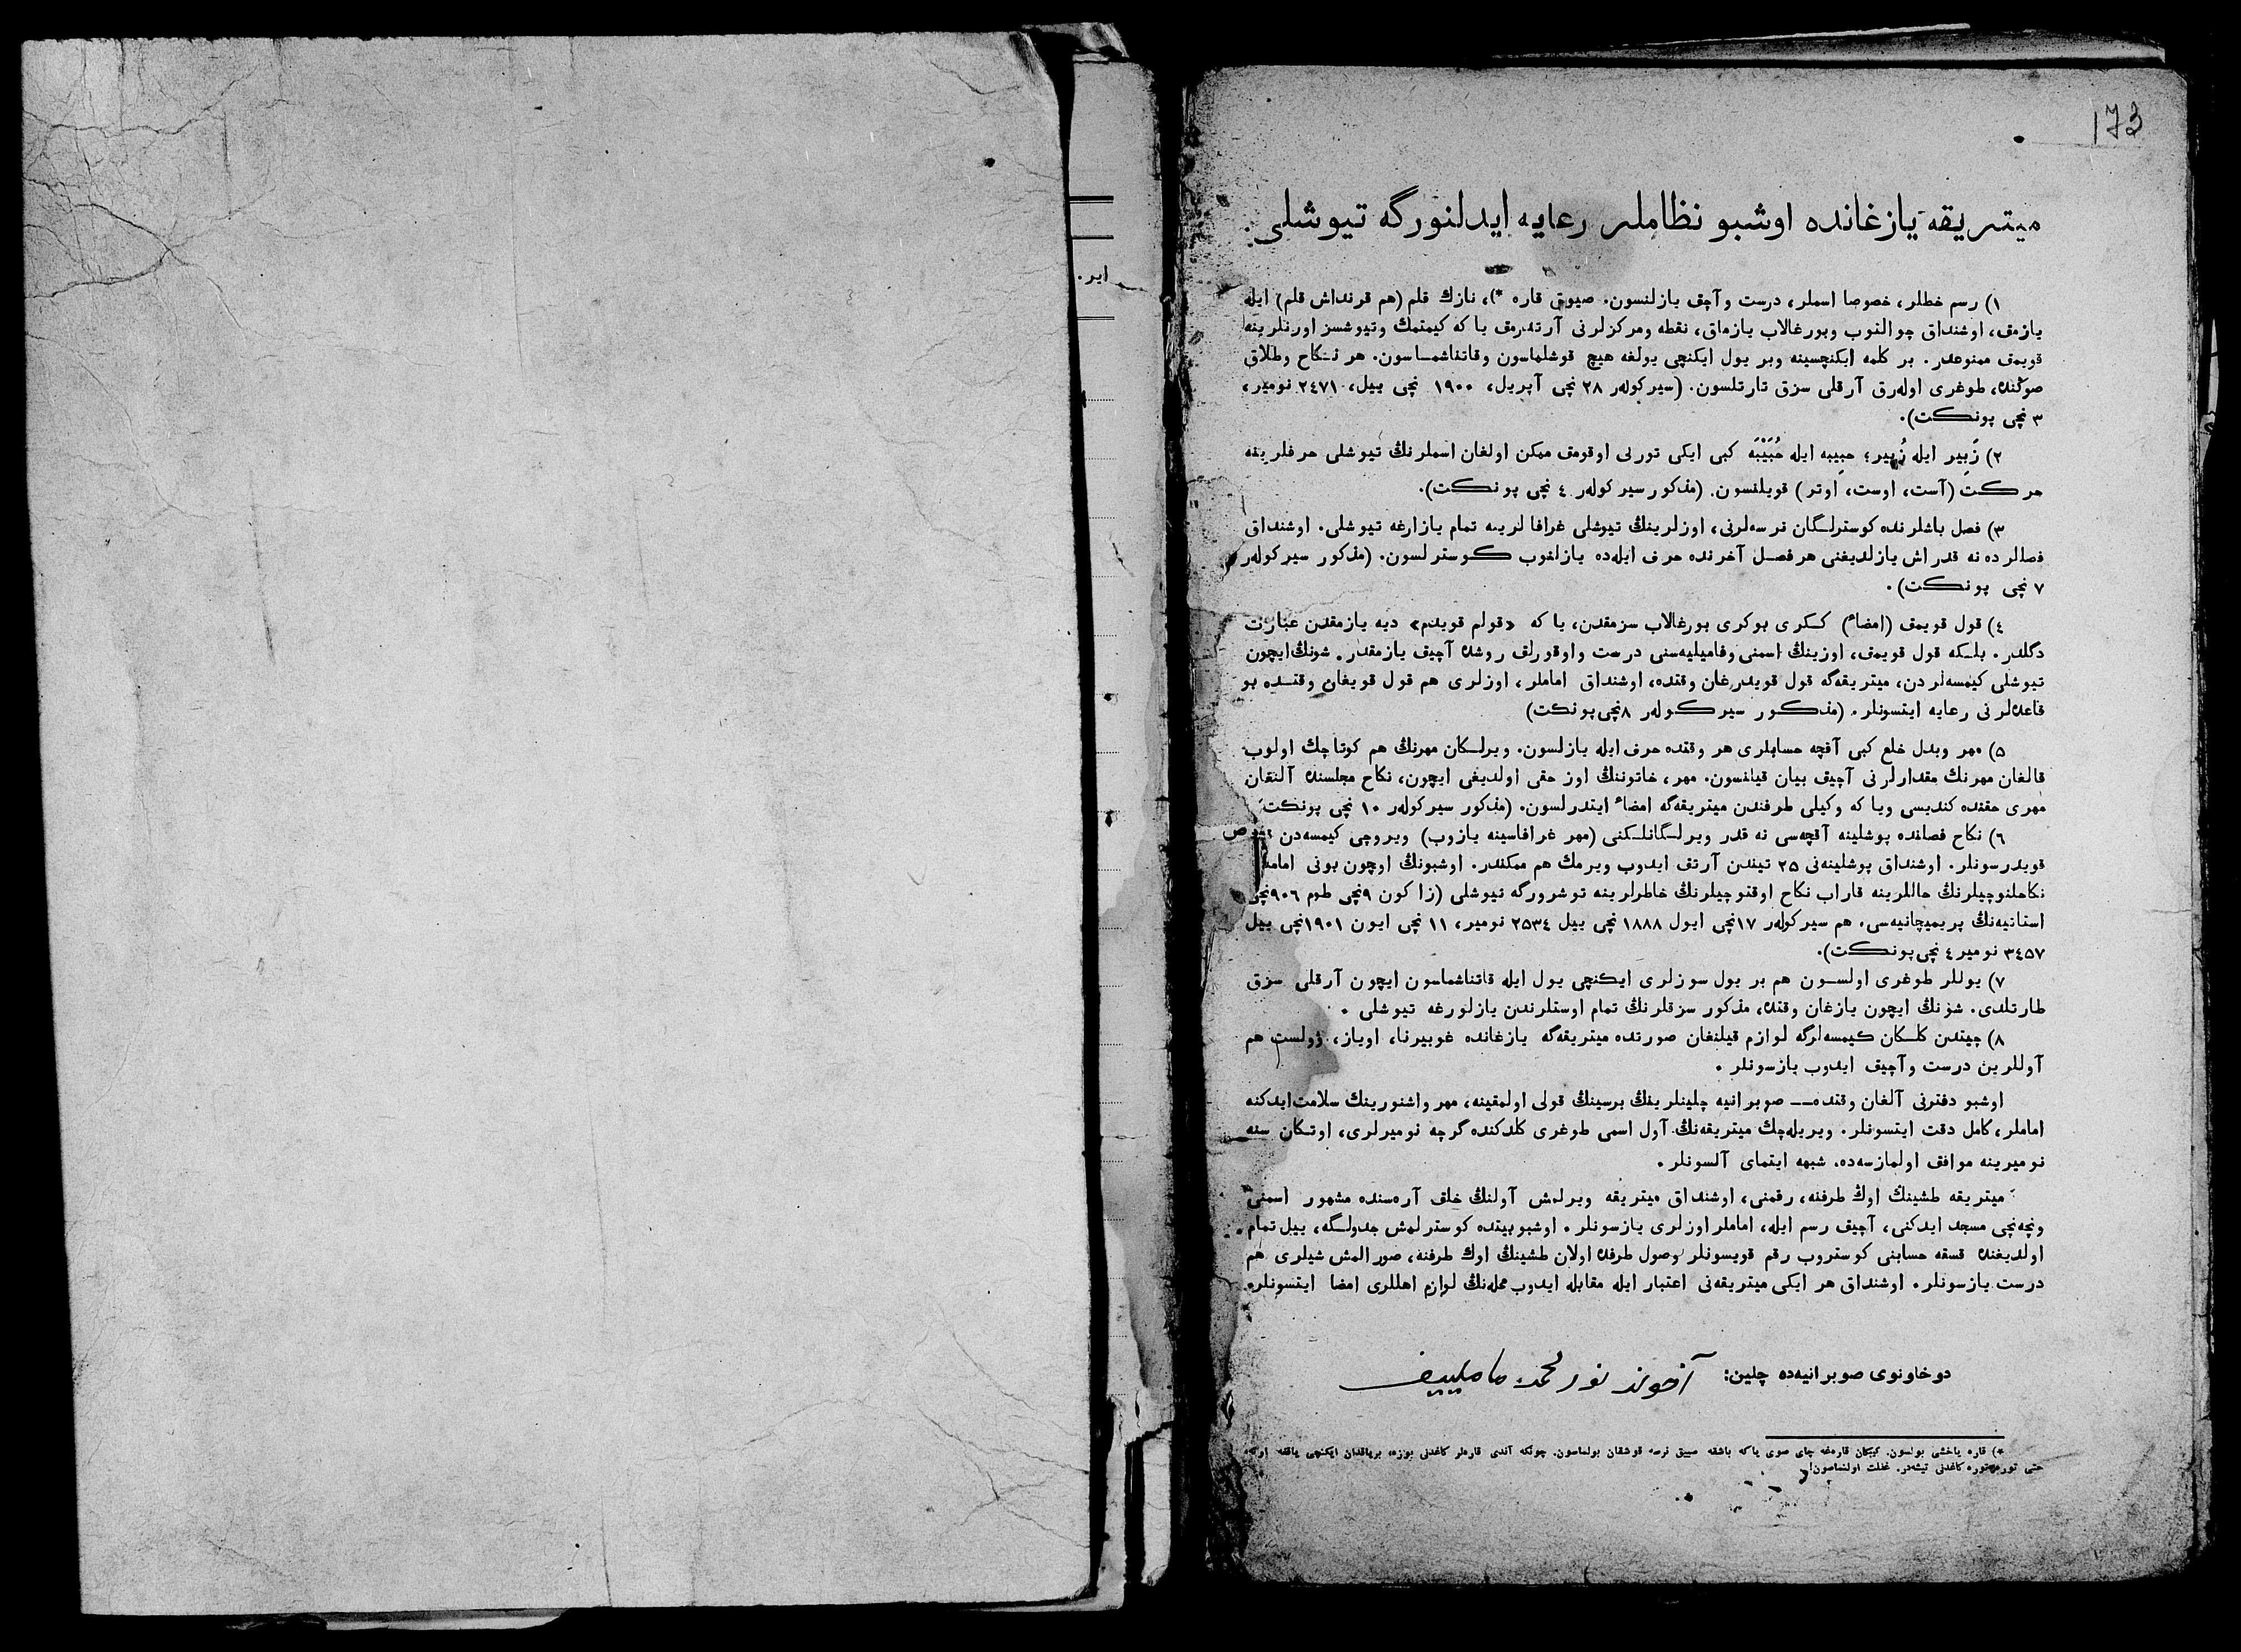 173
میتریقه یازغانده اوشبو نظاملر رعایه ایدلنورگه تیوشلی.
ایر.
١) رسم خطلر، خصوصا اسملر، درست و آچق یازلنسون. صیوق قاره *)، نازك قلم (هم قرنداش قلم) ایله
یازمق، اوشنداق چوالتوب وبورغالاب یازماق، نقطه ومرکزلرنی آرتدرمق یا که کیمتمك وتیوشسز اورنلرینه
قویمق ممنوعدر. بر کلمه ایکنچسینه وبر یول ایکنچی یولغه هیچ قوشلماسون وقاتناشماسون. هر نکاح وطلاق
صوڭنده، طوغری اوله‌رق آرقلی سزق تارتلسون. (سیرکولەر ٢٨ نچی آپریل، ١٩٠٠ نچی ییل، ٢٤٧١ نومیر،
٣ نچی پونکت).
٢) زَبِیر ایله زُبیر؛ حبِیبه ایله حُبَیْبَه کبی ایکی تورلی اوقومق ممکن اولغان اسملرنڭ تیوشلی حرفلرینه
حرکت (آست، اوست، اوتر) قویلنسون. (مذکور سیرکولەر ٤ نچی پونکت).
٣) فصل باشلرنده کوسترلگان نرسه‌لرنی، اوزلرینڭ تیوشلی غرافالرینه تمام یازارغه تیوشلی. اوشنداق
فصللرده نه قدر اش یازلدیغنی هر فصل آخرنده حرف ایله‌ده یازلنوب کوسترلسون. (مذکور سیرکولەر
٧ نچی پونکت).
٤) قول قویمق (امضاء) ککری بوکری بورغالاب سزمقدن، یا که «قولم قویدم» دیه یازمقدن عبارت
دگلدر. بلکه قول قویمق، اوزینڭ اسمنی وفامیلیه‌سنی درست واوقورلق روشده آچیق یازمقدر. شونڭ ایچون
تیوشلی کیمسه‌لردن، میتریقه‌گه قول قویدرغان وقتده، اوشنداق اماملر، اوزلری هم قول قویغان وقتده بو
قاعده‌لرنی رعایه ایتسونلر. (مذکور سیرکولەر ٨نچی پونکت)
٥) مهر وبدل خلع کبی آقچه حسابلری هر وقتده حرف ایله یازلسون. ویرلگان مهرنڭ هم کوتاچك اولوب
قالغان مهرنك مقدارلرنی آچیق بیان قیلنسون. مهر، خاتوننڭ اوز حقی اولدیغی ایچون، نکاح مجلسنده آلنغان
مهری حقنده کندیسی ویا که وکیلی طرفندن میتریقه‌گه امضاء ایتدرلسون. (مذکور سیرکولەر ١٠ نچی پونکت
٦) نکاح فصلنده پوشلینه آقچه‌سی نه قدر ویرلگانلکنی (مهر غرافاسینه یازوب) ویروچی کیمسه‌دن
قویدرسونلر. اوشنداق پوشلینه‌نی ٢٥ تیندن آرتق ایدوب ویرمك هم ممکندر. اوشبونڭ اوچون بونی
نکاحلنوچیلرنڭ حاللرینه قاراب نکاح اوقتوچیلرنڭ خاطرلرینه توشرورگه تیوشلی (زاکون ٩نچی طوم ٩٠٦نچی
استاتیه‌نڭ پریمیچانیه‌سی. هم سیرکولەر ١٧نچی ایول ١٨٨٨ نچی ییل ٢٥٣٤ نومیر، ١١ نچی ایون ١٩٠١نچی ییل
٣٤٥٧ نومیر ٤ نچی پونکت).
٧) یوللر طوغری اولسون هم بر یول سوزلری ایکنچی یول ایله قاتناشماسون ایچون آرقلی سزق
طارتلدی. شونڭ ایچون یازغان وقتده، مذکور سزقلرنڭ تمام اوستلرندن یازلورغه تیوشلی.
٨) چیتدن کلگان کیمسه‌لرگه لوازم قیلنغان صورتده میتریقه‌گه یازغانده غوبیرنا، اویاز، ژولست هم
آوللرین درست وآچیق ایدوب یازسونلر.
اوشبو دفترنی آلغان وقتده — صوبرانیه چلینلرینڭ برسینڭ قولی اولمقینه، مهر واشنورینك سلامت ایدکنه
اماملر، کامل دقت ایتسونلر. ویریله‌چك میتریقه‌نڭ آول اسمی طوغری کلدکنده گرچه نومیرلری، اوتکان سنه
نومیرینه موافق اولمازسه‌ده، شبهه ایتمای آلسونلر.
میتریقه طشینڭ اوڭ طرفنه، رقمنی، اوشنداق میتریقه ویرلمش آولنڭ خلق آره‌سنده مشهور اسمنی
ونچه‌نچی مسجد ایدکنی، آچیق رسم ایله، اماملر اوزلری یازسونلر. اوشبو بیتده کوسترلمش جدولگه، ییل تمام
اولدیغنده قسقه حسابنی کوستروب رقم قویسونلر وصول طرفده اولان طشینڭ اوك طرفنه، صورالمش شیلری هم
درست یازسونلر. اوشنداق هر ایکی میتریقه‌نی اعتبار ایله مقابله ایدوب محله‌نڭ لوازم اهللری امضا ایتسونلر.
دوخاونوی صوبرانیه‌ده چلین: آخوند نور محمد مامليیف
*) قاره یاخشی بولسون. کیبکان قاره‌غه چای صوی یا که باشقه صییق نرسه قوشقان بولماسون. چونکه آندی قاره‌لر کاغدنی بوزه، بریاقدان ایکنچی یاققه اوته.
حتی توره توره کاغدنی تیشه‌در. غفلت اولنماسون!